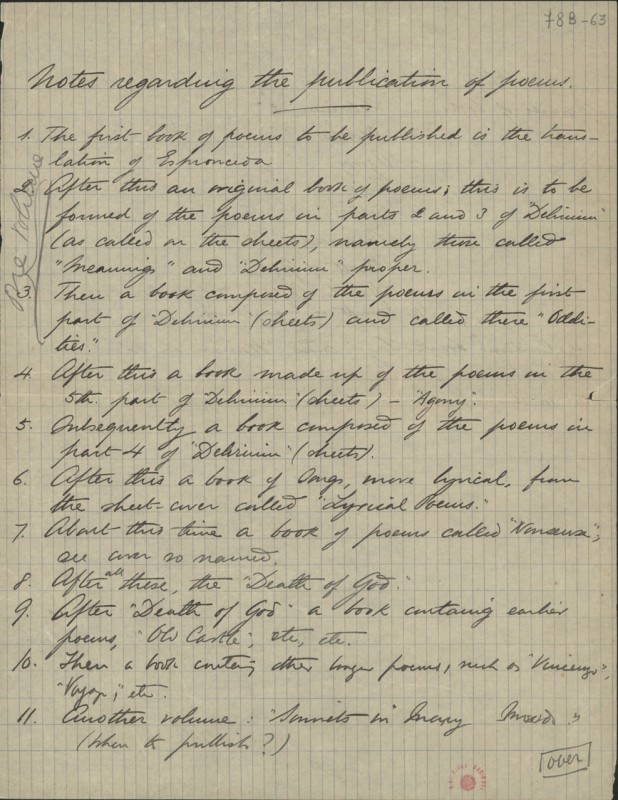 78B-63
Notes regarding the publication of poems.
1. The first book of poems to be published is the trans-
lation of Espronceda
2. After this an original book of poems; this is to be
formed of the poems in parts 2 and 3 of "Delirium"
(as called on the sheets), namely those called
"Meanings" and "Delirium" proper.
3. Then a book composed of the poems in the first
part of "Delirium" (sheets) and called there "Oddi-
ties."
4. After this a book made up of the poems in the
5th. part of "Delirium" (sheets) – "Agony".
5. Subsequently a book composed of the poems in
part 4 of "Delirium" (sheets).
6. After this a book of songs, more lyrical, from
the sheet-cover called "Lyrical Poems."
7. About this time a book of poems called "Nonsense";
see cover so named.
8. After all these, the "Death of God".
9. After "Death of God" a book containing earlier
poems, "Old Castle", etc, etc.
10. Then a book containing other longer poems, such as "Vincenzo",
"Voyage", etc.
11. Another volume: "Sonnets in Many Moods"
(when to publish?)
over